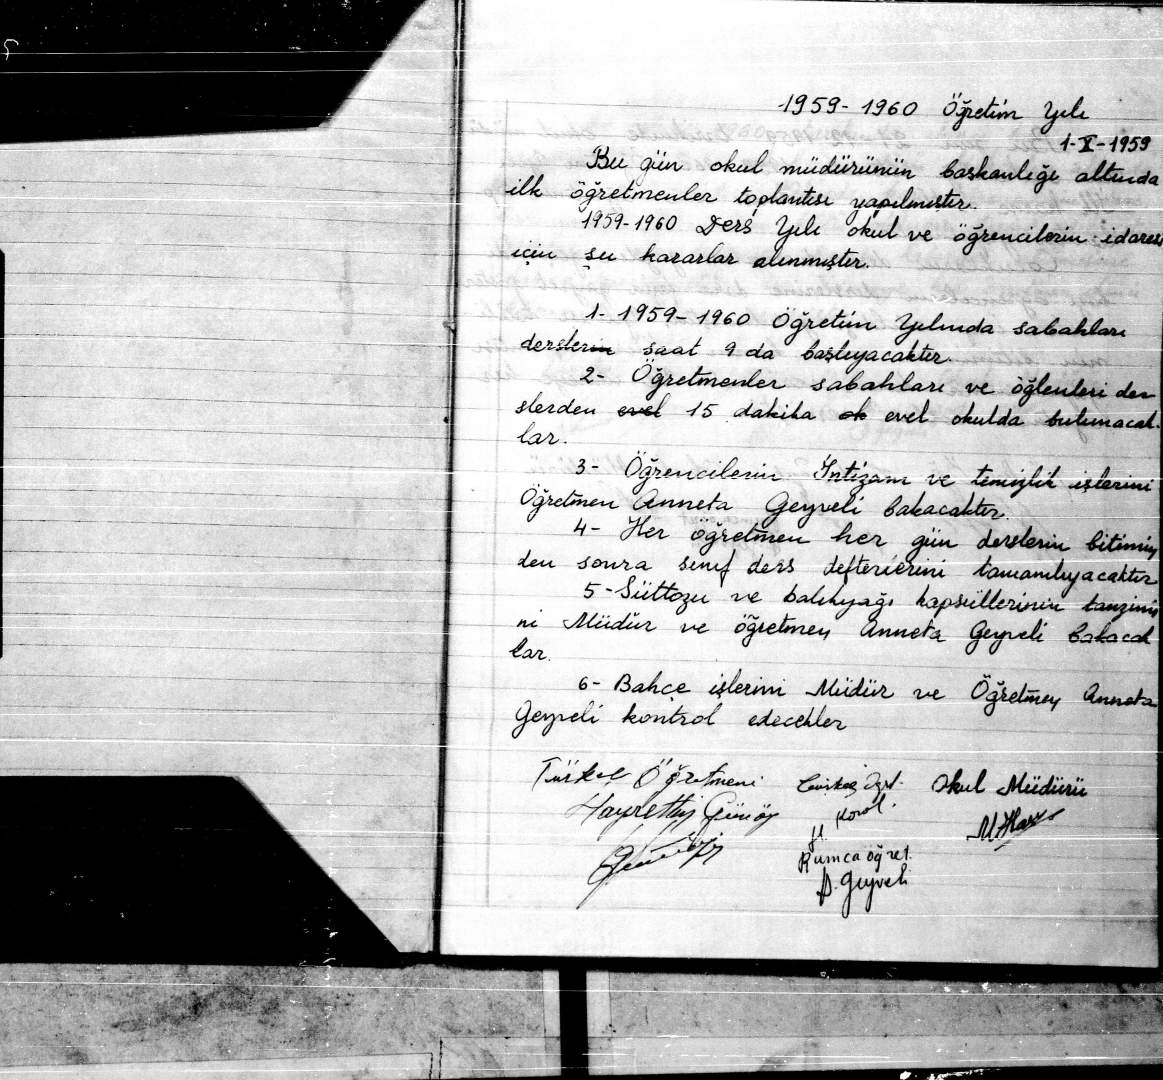 1959-1960 Öğretim Yılı
1-X-1959
Bu gün okul müdürünün başkanlığı altında
ilk öğretmenler toplantısı yapılmıştır.
1959-1960 Ders Yılı okul ve öğrencilerin idaresi
için şu kararlar alınmıştır.
1- 1959-1960 Öğretim Yılında sabahları
derslerin saat 9 da başlıyacaktır.
2- Öğretmenler sabahları ve öğlenleri der
slerden evel 15 dakika ok evel okulda bulunacak
lar.
3- Öğrencilerin İntizam ve temizlik işlerini
Öğretmen Anneta Geyveli bakacaktır.
4- Her öğretmen her gün derslerin bitimin
den sonra sınıf ders defterlerini tamamlıyacaktır
5- Süttozu ve balıkyağı kapsüllerinin tanzimi
ni Müdür ve öğretmen Anneta Geyveli bakacak
lar.
6- Bahçe işlerini Müdür ve Öğretmen Anneta
Geyveli kontrol edecekler
Türkçe Öğretmeni Türkçe Öğrt. Okul Müdürü
Hayrettin Günöz
Rumca öğret.
A. Geyveli